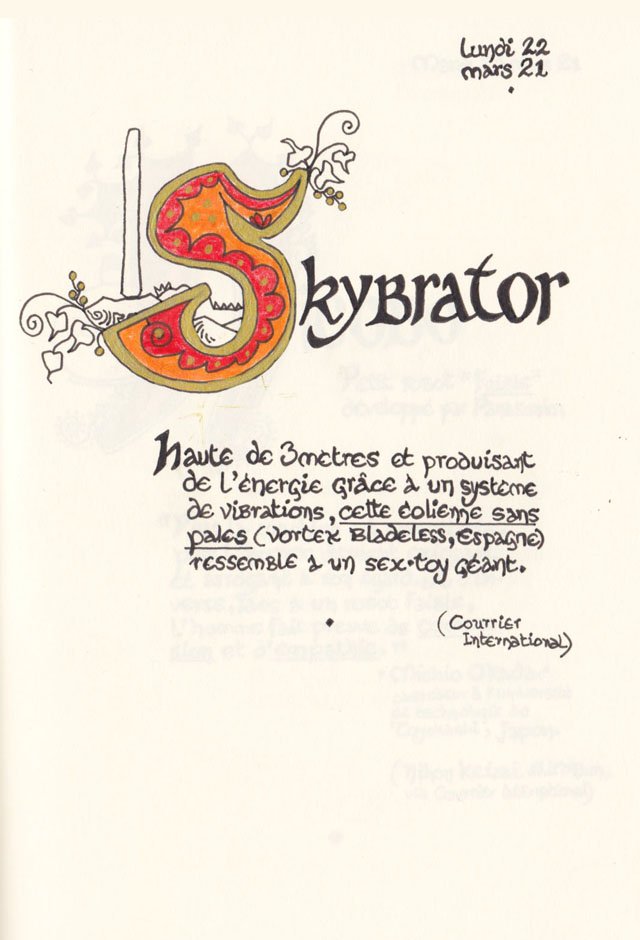 lundi 22
mars 21
Skybrator
Haute de 3 mètres et produisant
de l'énergie grâce à un système
de vibrations, cette éolienne sans
pales (Vortex Bladeless, Espagne)
ressemble à un sex-toy géant.
(Courrier
International)